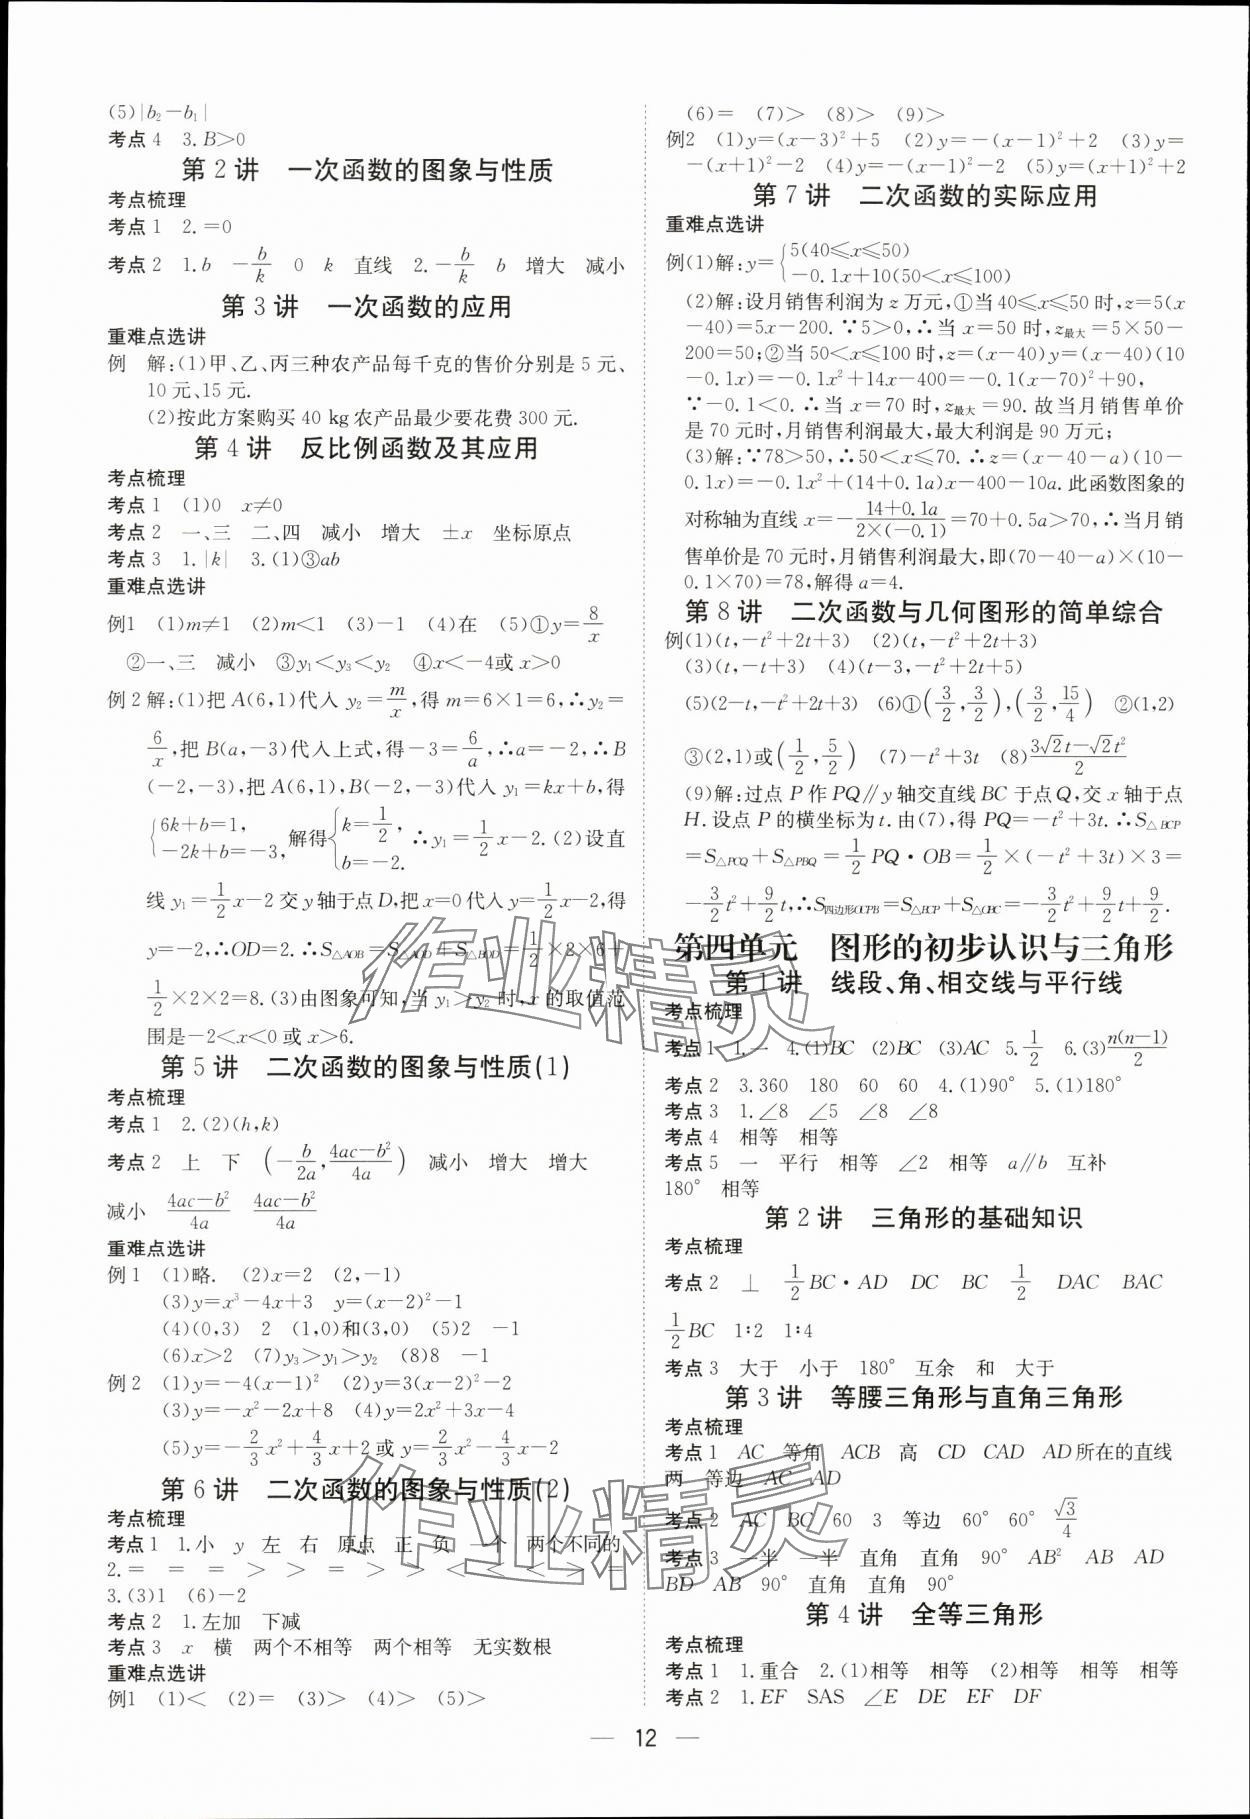 (5)|b₂－b₁|
考点 4　3.B＞0
第 2 讲　一次函数的图象与性质
考点梳理
考点 1　2.＝0
考点 2　1.b　－b/k　0　k　直线　2.－b/k　b　增大　减小
第 3 讲　一次函数的应用
重难点选讲
例　解:(1)甲、乙、丙三种农产品每千克的售价分别是 5 元、
10 元、15 元.
(2)按此方案购买 40 kg 农产品最少要花费 300 元.
第 4 讲　反比例函数及其应用
考点梳理
考点 1　(1)0　x≠0
考点 2　一、三　二、四　减小　增大　±x　坐标原点
考点 3　1.|k|　3.(1)③ab
重难点选讲
例1　(1)m≠1　(2)m＜1　(3)－1　(4)在　(5)①y＝8/x
②一、三　减小　③y₁＜y₃＜y₂　④x＜－4或 x＞0
例 2 解:(1)把 A(6,1)代入 y₂＝m/x,得 m＝6×1＝6,∴y₂＝
6/x,把 B(a,－3)代入上式,得－3＝6/a,∴a＝－2,∴B
(－2,－3),把 A(6,1),B(－2,－3)代入 y₁＝kx＋b,得
{6k＋b＝1, －2k＋b＝－3,解得{k＝1/2, b＝－2. ∴y₁＝1/2x－2.(2)设直
线 y₁＝1/2x－2 交 y 轴于点 D,把 x＝0 代入 y＝1/2x－2,得
y＝－2,∴OD＝2.∴S△AOB＝S△AOD＋S△BOD＝1/2×2×6＋
1/2×2×2＝8.(3)由图象可知,当 y₁＞y₂ 时,x 的取值范
围是－2＜x＜0 或 x＞6.
第 5 讲　二次函数的图象与性质(1)
考点梳理
考点 1　2.(2)(h,k)
考点 2　上　下　(－b/2a,4ac－b²/4a)　减小　增大　增大
减小　4ac－b²/4a　4ac－b²/4a
重难点选讲
例 1　(1)略.　(2)x＝2　(2,－1)
(3)y＝x³－4x＋3　y＝(x－2)²－1
(4)(0,3)　2　(1,0)和(3,0)　(5)2　－1
(6)x＞2　(7)y₃＞y₁＞y₂　(8)8　－1
例 2　(1)y＝－4(x－1)²　(2)y＝3(x－2)²－2
(3)y＝－x²－2x＋8　(4)y＝2x²＋3x－4
(5)y＝－2/3x²＋4/3x＋2 或 y＝2/3x²－4/3x－2
第 6 讲　二次函数的图象与性质(2)
考点梳理
考点1　1.小　y　左　右　原点　正　负　一个　两个不同的
2.＝　＝　＝　＞　＞　＝　＞　＞　＜　＜　＜　＞　＝
3.(3)1　(6)－2
考点 2　1.左加　下减
考点 3　x　横　两个不相等　两个相等　无实数根
重难点选讲
例1　(1)＜　(2)＝　(3)＞　(4)＞　(5)＞
(6)＝　(7)＞　(8)＞　(9)＞
例2　(1)y＝(x－3)²＋5　(2)y＝－(x－1)²＋2　(3)y＝
－(x＋1)²－2　(4)y＝－(x－1)²－2　(5)y＝(x＋1)²＋2
第 7 讲　二次函数的实际应用
重难点选讲
例(1)解:y＝{5(40≤x≤50) －0.1x＋10(50＜x≤100)
(2)解:设月销售利润为 z 万元,①当 40≤x≤50 时,z＝5(x
－40)＝5x－200.∵5＞0,∴当 x＝50 时,z最大＝5×50－
200＝50;②当 50＜x≤100 时,z＝(x－40)y＝(x－40)(10
－0.1x)＝－0.1x²＋14x－400＝－0.1(x－70)²＋90,
∵－0.1＜0.∴当 x＝70 时,z最大＝90.故当月销售单价
是 70 元时,月销售利润最大,最大利润是 90 万元;
(3)解:∵78＞50,∴50＜x≤70.∴z＝(x－40－a)(10－
0.1x)＝－0.1x²＋(14＋0.1a)x－400－10a.此函数图象的
对称轴为直线 x＝－14＋0.1a/2×(－0.1)＝70＋0.5a＞70,∴当月销
售单价是 70 元时,月销售利润最大,即(70－40－a)×(10－
0.1×70)＝78,解得 a＝4.
第 8 讲　二次函数与几何图形的简单综合
例(1)(t,－t²＋2t＋3)　(2)(t,－t²＋2t＋3)
(3)(t,－t＋3)　(4)(t－3,－t²＋2t＋5)
(5)(2－t,－t²＋2t＋3)　(6)①(3/2,3/2),(3/2,15/4)　②(1,2)
③(2,1)或(1/2,5/2)　(7)－t²＋3t　(8)3√2t－√2t²/2
(9)解:过点 P 作 PQ∥y 轴交直线 BC 于点 Q,交 x 轴于点
H.设点 P 的横坐标为 t.由(7),得 PQ＝－t²＋3t.∴S△BCP
＝S△PCQ＋S△PBQ＝1/2PQ·OB＝1/2×(－t²＋3t)×3＝
－3/2t²＋9/2t,∴S四边形OCPB＝S△BCP＋S△OBC＝－3/2t²＋9/2t＋9/2.
第四单元　图形的初步认识与三角形
第 1 讲　线段、角、相交线与平行线
考点梳理
考点1　1.一　4.(1)BC　(2)BC　(3)AC　5.1/2　6.(3)n(n－1)/2
考点 2　3.360　180　60　60　4.(1)90°　5.(1)180°
考点 3　1.∠8　∠5　∠8　∠8
考点 4　相等　相等
考点 5　一　平行　相等　∠2　相等　a∥b　互补
180°　相等
第 2 讲　三角形的基础知识
考点梳理
考点 2　⊥　1/2BC·AD　DC　BC　1/2　DAC　BAC
1/2BC　1:2　1:4
考点 3　大于　小于　180°　互余　和　大于
第 3 讲　等腰三角形与直角三角形
考点梳理
考点 1　AC　等角　ACB　高　CD　CAD　AD所在的直线
两　等边　AC　AD
考点 2　AC　BC　60　3　等边　60°　60°　√3/4
考点 3　一半　一半　直角　直角　90°　AB²　AB　AD
BD　AB　90°　直角　直角　90°
第 4 讲　全等三角形
考点梳理
考点 1　1.重合　2.(1)相等　相等　(2)相等　相等　相等
考点 2　1.EF　SAS　∠E　DE　EF　DF
— 12 —
作业精灵
作业精灵